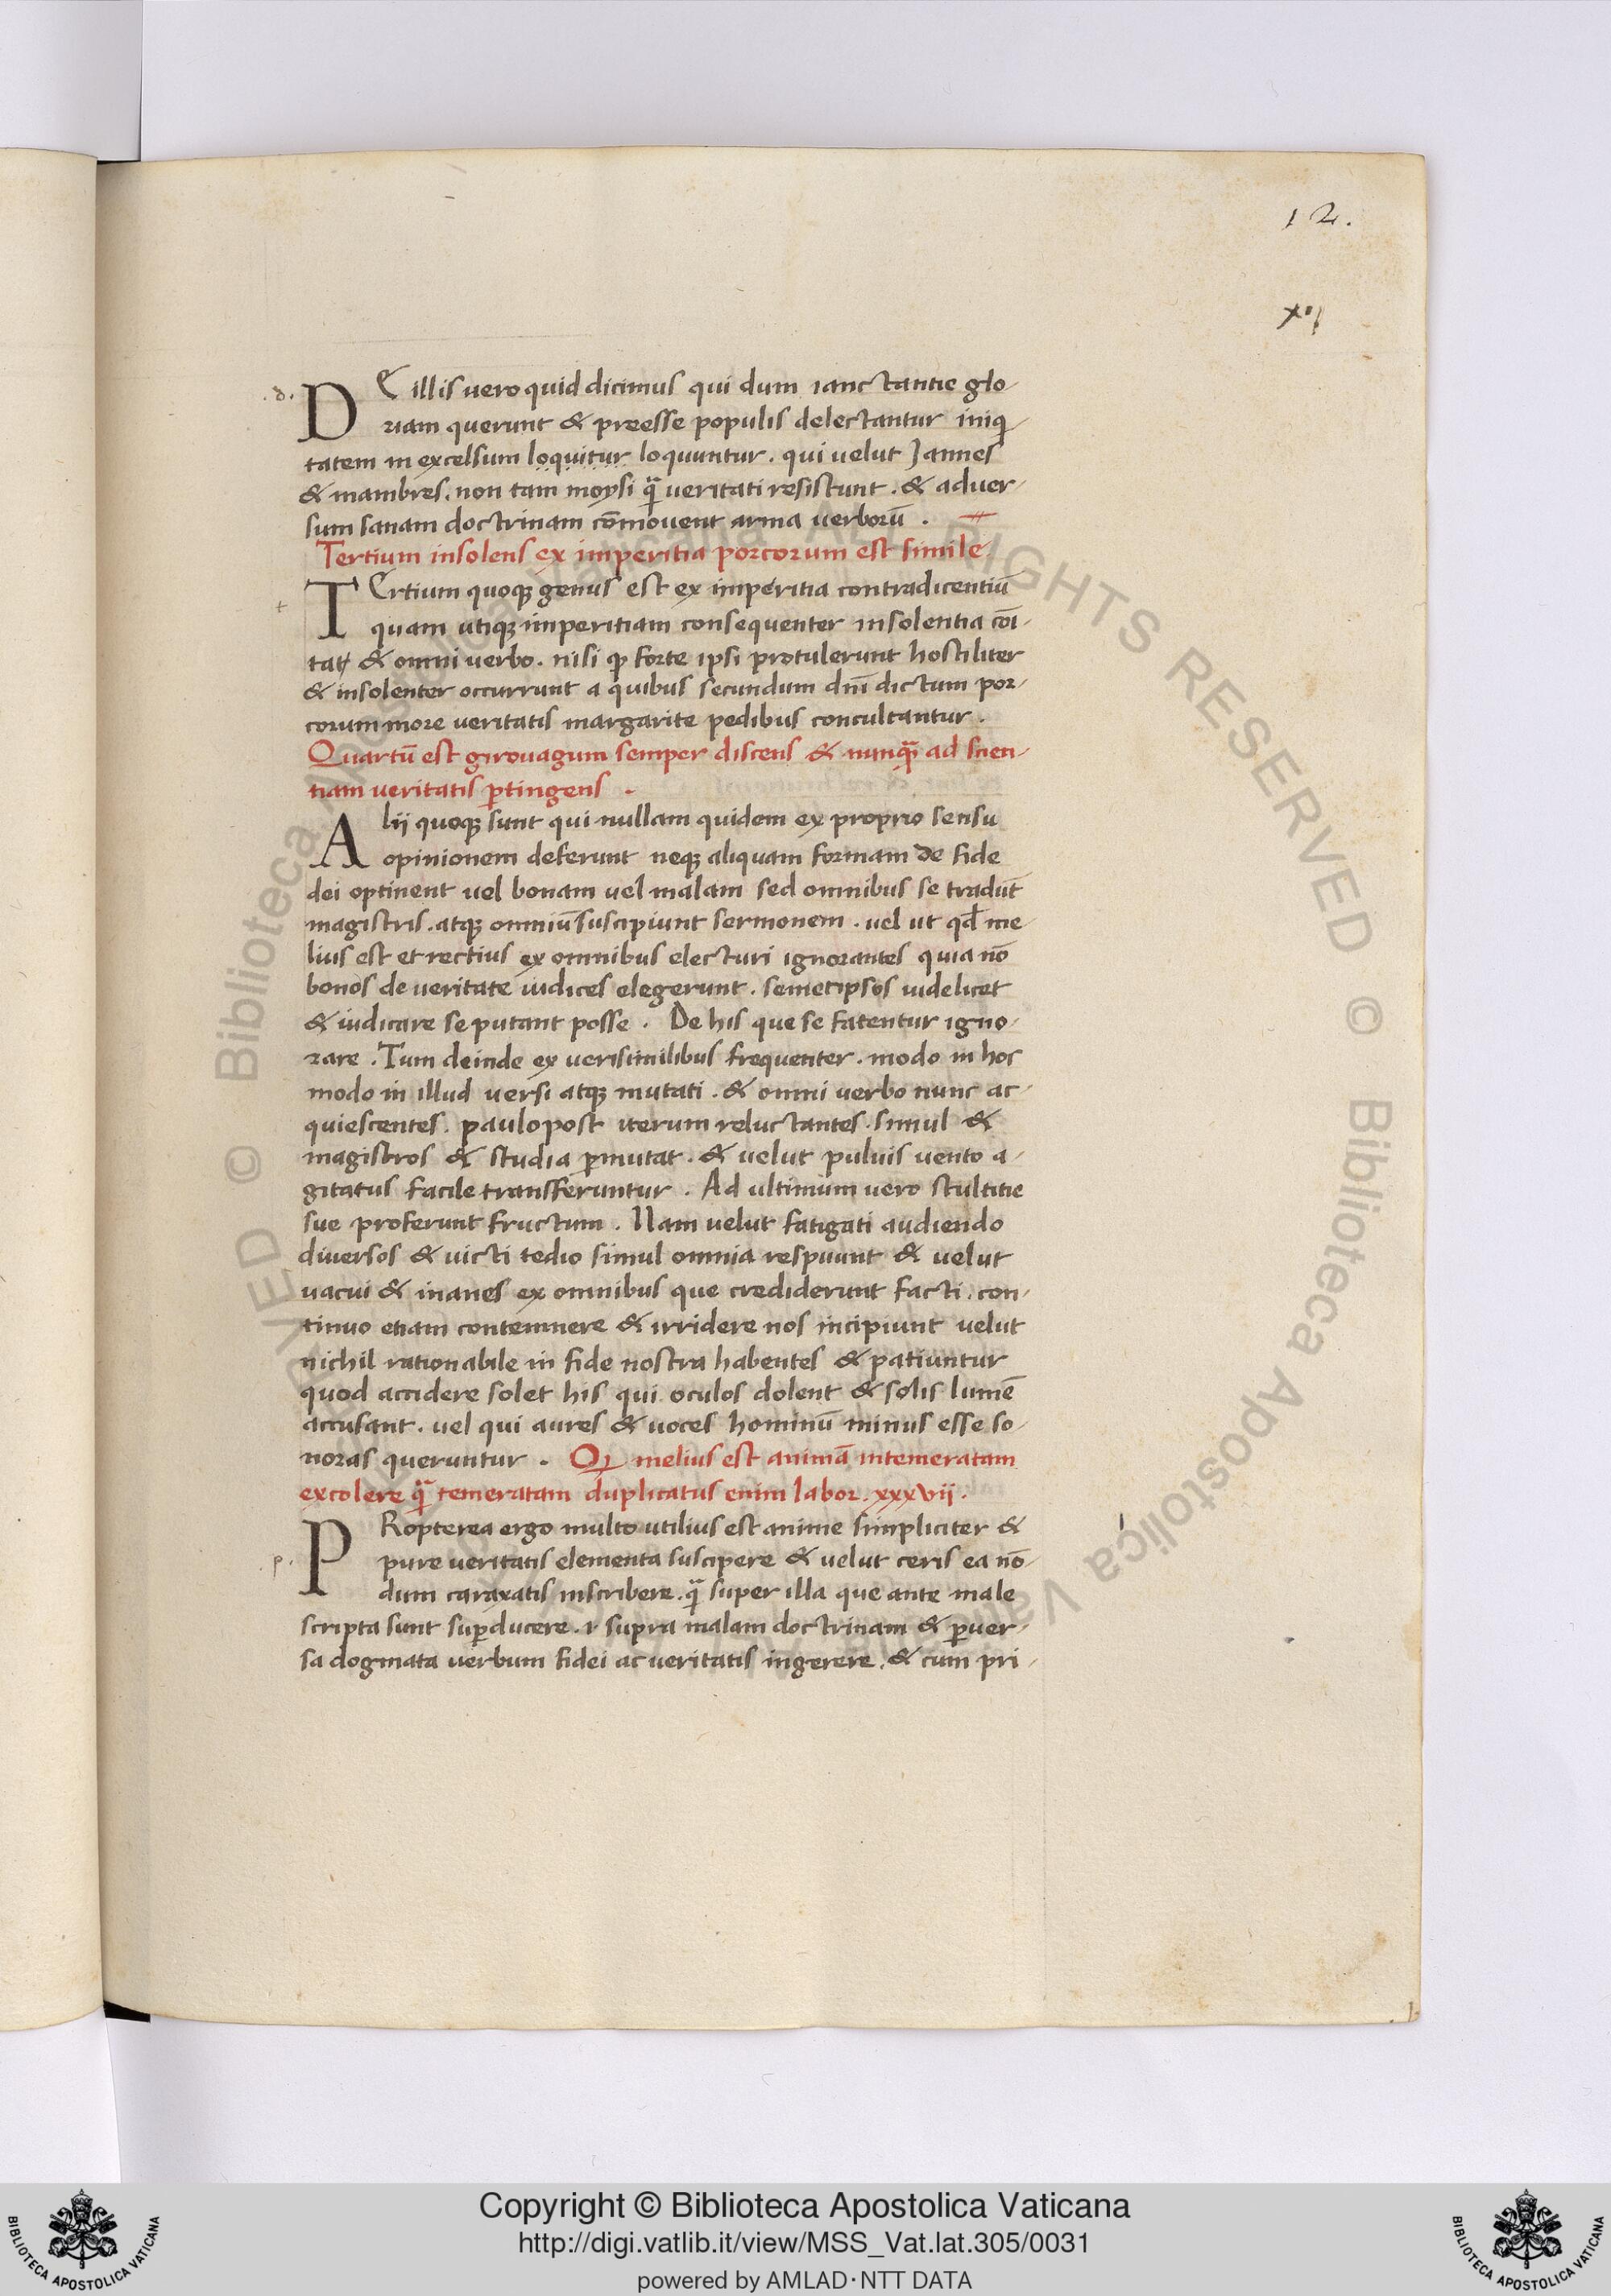 12.
xij
.d.
DE illis vero quid dicimus qui dum ianctantie glo-
riam querunt & preesse populis delectantur iniq̇-
tatem in excelsum loquitur loquuntur. qui velut Jannes
& mambres. non tam moysi q̄ȝ veritati resistunt. & adver-
sum sanam doctrinam cōmovent arma verborū.
Tertium insolens ex imperitia porcorum est simile
t
TErtium quoqȝ genus est ex imperitia contradicentiū
quam utiqȝ imperitiam consequenter insolentia cōi-
tat᷑ & omni verbo. nisi qđ forte ipsi protulerunt hostiliter
& insolenter occurrunt a quibus secundum dn̄i dictum por-
corum more veritatis margarite pedibus conculcantur.
Quartū est girovagum semper discens & nunq̄ȝ ad scien-
tiam veritatis ꝑtingens.
Alij quoqȝ sunt qui nullam quidem ex proprio sensu
opinionem deferunt neqȝ aliquam formam de fide
dei optinent vel bonam vel malam sed omnibus se tradūt
magistris. atqȝ omniū suscipiunt sermonem. vel ut qđ me-
lius est et rectius ex omnibus electuri ignorantes quia nō
bonos de veritate iudices elegerunt. semetipsos videlicet
& iudicare se putant posse. De his que se fatentur igno-
rare. Tum deinde ex verisimilibus frequenter. modo in hoc
modo in illud versi atqȝ mutati. & omni verbo nunc ac-
quiescentes. paulopost iterum reluctantes. simul &
magistros & studia ꝑmutat. & velut pulvis vento a-
gitatus facile transferuntur. Ad ultimum vero stultitie
sue proferunt fructum. Nam velut fatigati audiendo
diversos & victi tedio simul omnia respuunt & velut
vacui & inanes ex omnibus que crediderunt facti. con-
tinuo etiam contemnere & irridere nos incipiunt velut
nichil rationabile in fide nostra habentes & patiuntur
quod accidere solet his qui oculos dolent & solis lumē
accusant. vel qui aures & voces hominū minus esse so-
noras queruntur. Qđ melius est animā intemeratam
excolere q̄ȝ temeratam duplicatus enim labor. xxxvij.
.p.
PRopterea ergo multo utilius est anime simpliciter &
pure veritatis elementa suscipere & velut ceris ea nō-
dum caraxatis inscribere. q̄ȝ super illa que ante male
scripta sunt suꝑducere. i. supra malam doctrinam & ꝑver-
sa dogmata verbum fidei ac veritatis ingerere. & cum pri-
© Biblioteca Apostolica Vaticana ALL RIGHTS RESERVED © Biblioteca Apostolica Vaticana ALL RIGHTS RESERVED
BIBLIOTECA APOSTOLICA VATICANA
Copyright © Biblioteca Apostolica Vaticana
http://digi.vatlib.it/view/MSS_Vat.lat.305/0031
powered by AMLAD·NTT DATA
BIBLIOTECA APOSTOLICA VATICANA